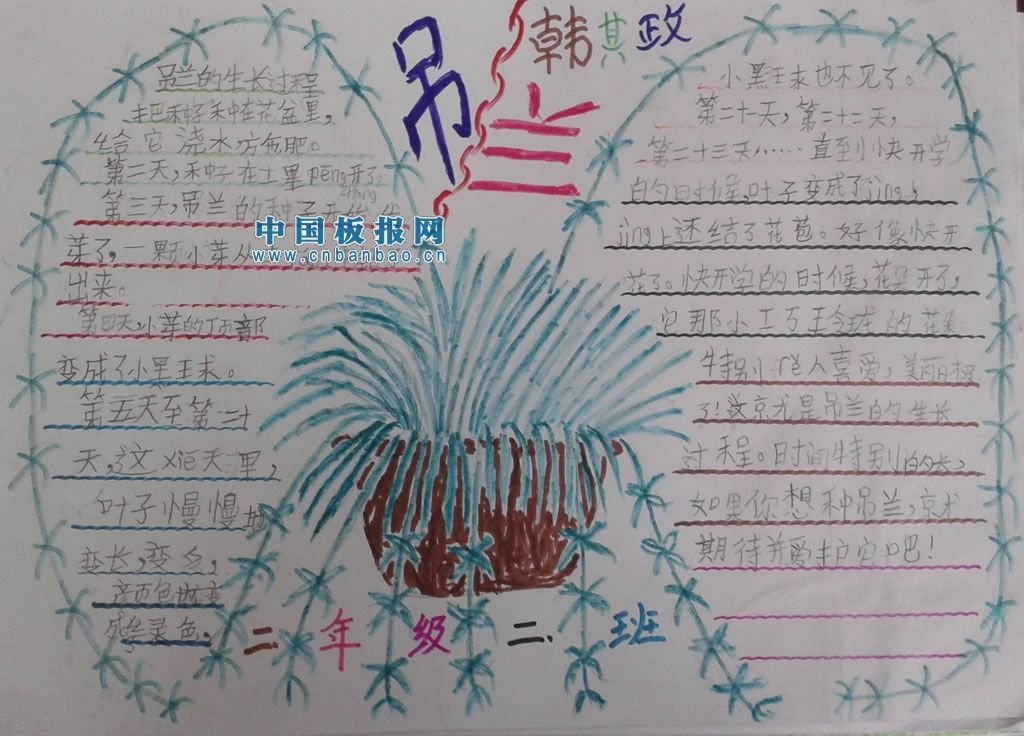 吊兰
韩其政
吊兰的生长过程
把种子种在花盆里,
给它浇水方包肥。
第二天,种子在土里peng开了。
第三天,吊兰的种子开始
zhang
芽了,一颗小芽从
出来。
第四天,小芽的顶部
变成了小黑王求。
第五天至第二十
天,这xie天里,
叶子慢慢地
变长,变多,
颜色变
成绿色。
小黑王求也不见了。
第二十一天,第二十二天,
第二十三天……直到快开学
的时候,叶子变成了jing,
jing上还结了花苞。好像快开
花了。快开学的时候,花朵开了,
它那小巧玲珑的花朵
特别讨人喜爱,美丽极
了!这就是吊兰的生长
过程。时间特别的长,
如果你想种吊兰,就
期待并爱护它吧!
二年级二.班
中国板报网
www.cnbanbao.cn